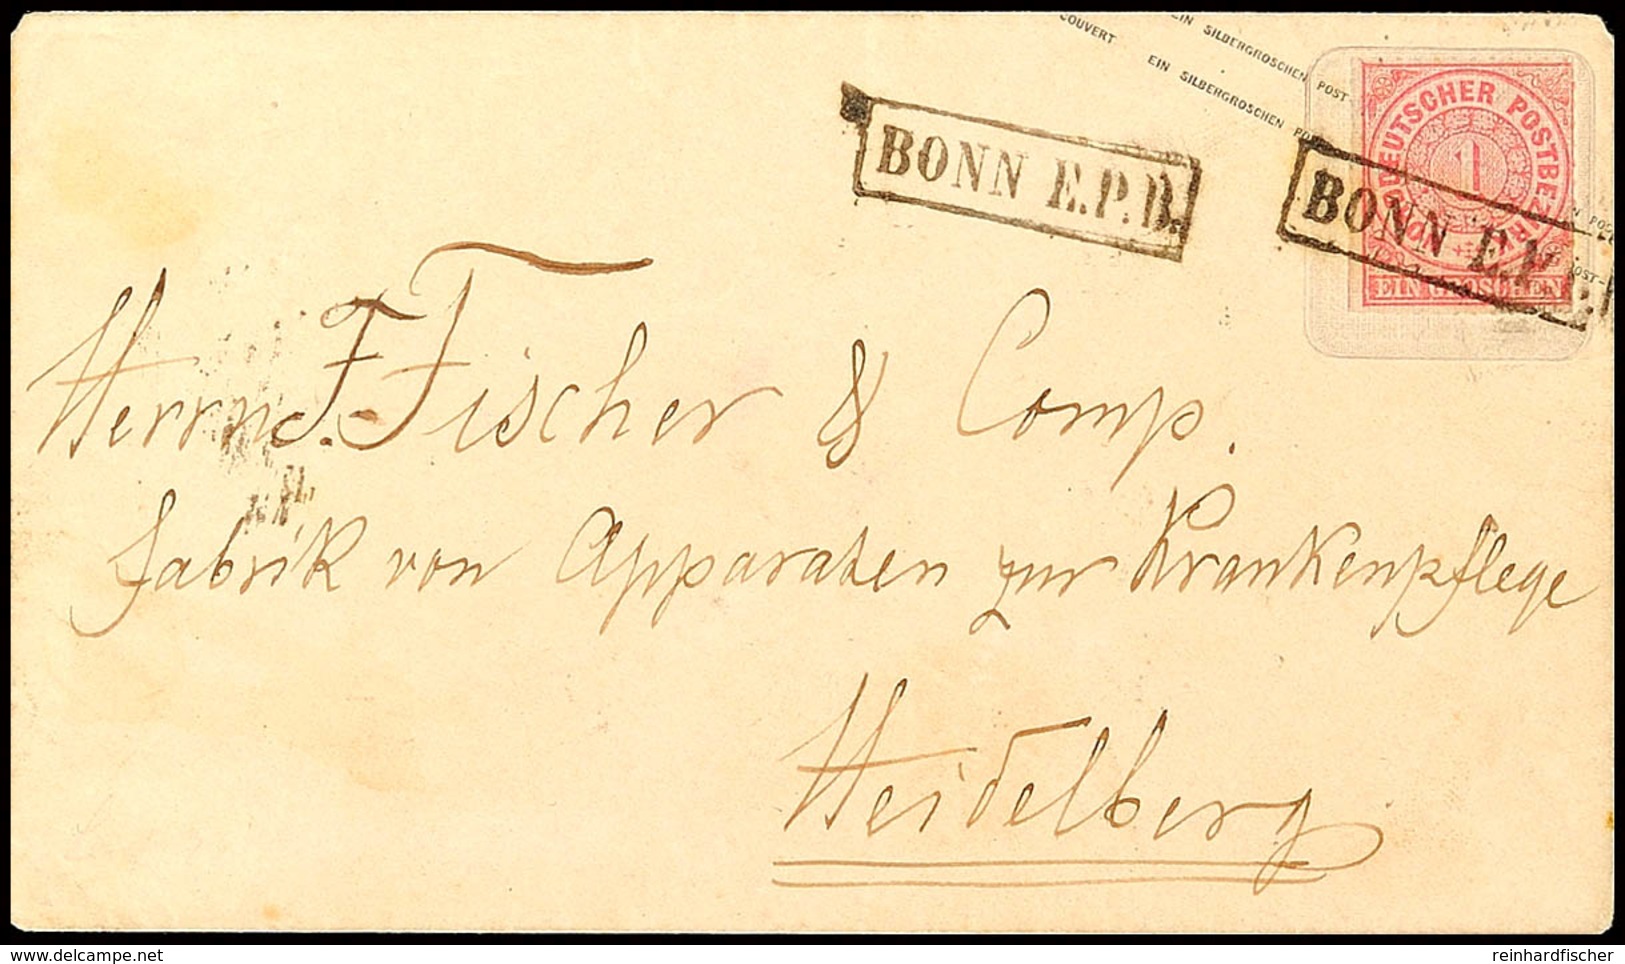 EIN SILBERGROSCHEN POST
COUVERT EIN SILBERGROSCHEN
BONN E.P.B.
BONN E.P.
NORDDEUTSCHER POSTBEZIRK
1
EIN GROSCHEN
Herrn F. Fischer & Comp.
Fabrik von Apparaten zur Krankenpflege
Heidelberg
delcampe.net
reinhardfischer